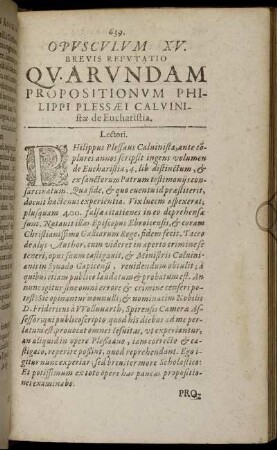 639.
OPVSCVLVM XV.
BREVIS REFVTATIO
QVARVNDAM
PROPOSITIONVM PHI-
LIPPI PLESSÆI CALVINI-
stæ de Eucharistia.
Lectori.
PHilippus Plessæus Calvinista, ante cō-
plures annos scripsit ingens volumen
de Eucharistia, 4. lib distinctum, &
ex sanctorum Patrum testimonijs con-
sarcinatum. Qua fide, & quo eventu id præstiterit,
docuit hactenus experientia. Vix lucem aspexerat,
plusquam 400. falsæ citationes in eo deprehensæ
sunt. Notavit illas Episcopus Ebroicensis, & coram
Christianissimo Galliarum Rege, fidem fecit. Taceo
de alijs Author, cum videret in aperto crimine se
teneri, opus suum castigavit, & Ministris Calvini-
anis in Synodo Gapicensi, revidendum obtulit; à
quibus etiam publicè laudatum & probatum est. An
nunc igitur sine omni errore & crimine censeri po-
test? Sic opinantur nonnulli; & nominatim Nobilis
D. Fridericus à VVollwarth, Spirensis Cameræ Af-
sessor, qui publico scripto, quod his diebus ad me per-
latum est, provocat omnes Iesuitas, vt experiantur,
an aliquid in opere Plessæano, iam correcto & ca-
stigato, reperire possint, quod reprehendant. Ego i-
gitur nunc experiar, sed breviter more Scholastico:
Et potissimum ex toto opere hac paucas propositio-
nes examinabo.
PRO-